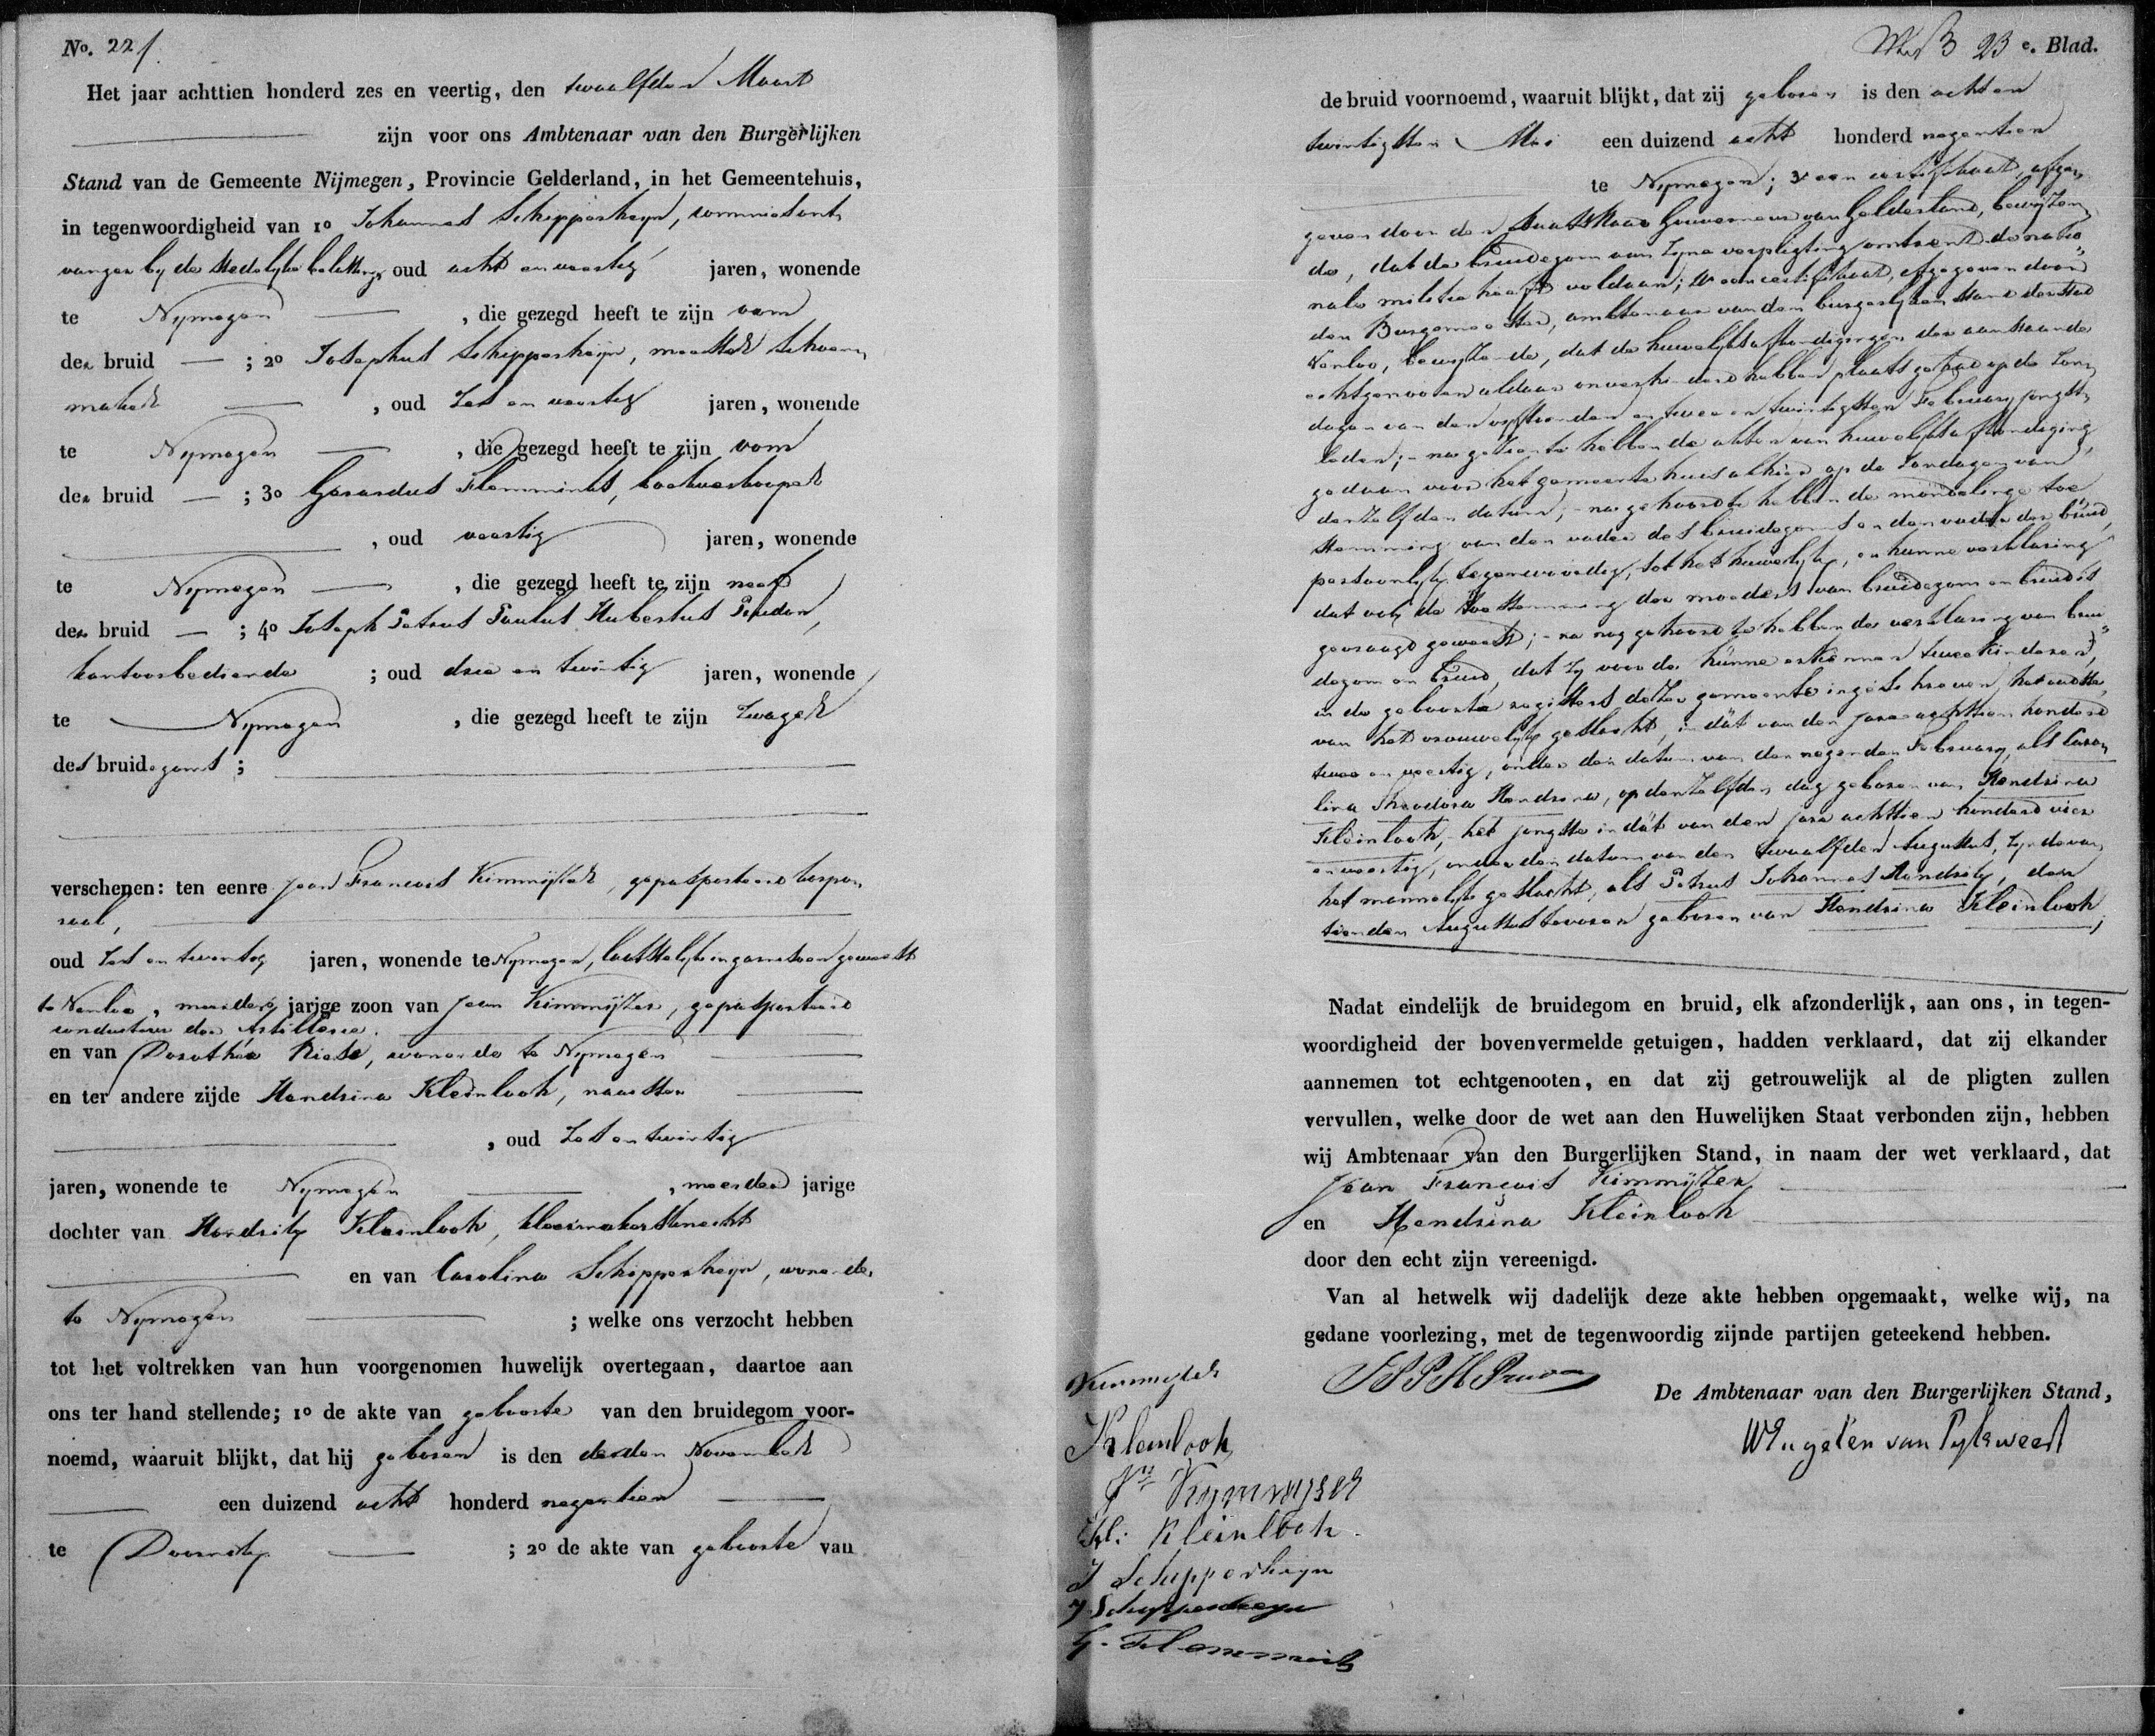 No. 22
Het jaar achttien honderd zes en veertig, den twaalfden Maart
zijn voor ons Ambtenaar van den Burgerlijken
Stand van de Gemeente Nijmegen, Provincie Gelderland, in het Gemeentehuis,
in tegenwoordigheid van 1o Johannes Schippersheijn,
vanger bij de Stedelijke belasting, oud acht en veertig jaren, wonende
te Nijmegen , die gezegd heeft te zijn oom
der bruid ; 2o Josephus Schippersheijn, meester schoen
maker , oud zes en veertig jaren, wonende
te Nijmegen , die gezegd heeft te zijn oom
der bruid ; 3o Gerardus Flemminks, boekverkooper
, oud veertig jaren, wonende
te Nijmegen , die gezegd heeft te zijn neef
der bruid ; 4o Joseph Petrus Paulus Hubertus
kantoorbediende ; oud drie en twintig jaren, wonende
te Nijmegen , die gezegd heeft te zijn zwager
des bruidegoms ;
verschenen: ten eenre Jean Francois Kimmijser, gepasporteerd korpo
raal,
oud zes en twintig jaren, wonende te Nijmegen, laatstelijk in garnisoen geweest
te Venloo, meerderjarige zoon van Jean Kimmijzer, gepasporteerd
conducteur der Artillerie.
en van Dorothea , wonende te Nijmegen
en ter andere zijde Hendrina Kleinlooh, naaister
, oud zes en twintig
jaren, wonende te Nijmegen , meerder jarige
dochter van Hendrik Kleinlooh, kleermakersknecht
en van Carolina Schippersheijn, wonende
te Nijmegen ; welke ons verzocht hebben
tot het voltrekken van hun voorgenomen huwelijk overtegaan, daartoe aan
ons ter hand stellende; 1o de akte van geboorte van den bruidegom voor-
noemd, waaruit blijkt, dat hij geboren is den derden November
een duizend acht honderd negentien
te Doornik ; 2o de akte van geboorte van
23 e. Blad.
de bruid voornoemd, waaruit blijkt, dat zij geboren is den acht en
twintigsten Mei een duizend acht honderd negentien
te Nijmegen; 3o een certifikaat, afge
geven door den Staatsraad Gouverneur van Gelderland, bewijzen
de, dat de bruidegom aan zijne verpligting omtrent de natio
nale militie heeft voldaan; 4o een certifikaat, afgegeven door
den Burgemeester, ambtenaar van den burgerlijken stand der stad
Venloo, bewijzende, dat de huwelijksafkondigingen der aanstaande
echtgenooten aldaar onverhinderd hebben plaats gehad op de Zon
dagen van den vijftienden en twee en twintigsten February jongst
leden; na gezien te hebben de akten van huwelijksafkondiging,
gedaan voor het gemeentehuis alhier op de Zondagen van
denzelfden datum; na gehoord te hebben de mondelinge toe
stemming van den vader des bruidegoms en den vader der bruid,
persoonlijk tegenwoordig, tot het huwelijk, en hunne verklaring
dat ook de toestemming der moeders van bruidegom en bruid is
gevraagd geweest; na nog gehoord te hebben de verklaring van brui
degom en bruid, dat zij voor de hunne erkennen twee kinderen,
in de geboorte registers dezer gemeente ingeschreven, het oudste,
van het vrouwelijk geslacht, in dat van den jare achttien honderd
twee en veertig, onder den datum van den negenden February, als Caro
lina Theodora Hendrina, op denzelfden dag geboren van Hendrina
Kleinlooh, het jongste in dat van den jare achttien honderd vier
en veertig, onder den datum van den twaalfden Augustus, zijnde van
het mannelijk geslacht, als Petrus Johannes Hendrik, den
tienden Augustus tevoren geboren van Hendrina Kleinlooh,
Nadat eindelijk de bruidegom en bruid, elk afzonderlijk, aan ons, in tegen-
woordigheid der bovenvermelde getuigen, hadden verklaard, dat zij elkander
aannemen tot echtgenooten, en dat zij getrouwelijk al de pligten zullen
vervullen, welke door de wet aan den Huwelijken Staat verbonden zijn, hebben
wij Ambtenaar van den Burgerlijken Stand, in naam der wet verklaard, dat
Jean François Kimmijzer
en Hendrina Kleinlooh
door den echt zijn vereenigd.
Van al hetwelk wij dadelijk deze akte hebben opgemaakt, welke wij, na
gedane voorlezing, met de tegenwoordig zijnde partijen geteekend hebben.
Kimmijser
De Ambtenaar van den Burgerlijken Stand,
Kleinlooh
Kijmmijser
Kleinlooh
J Schippersheijn
J Schippersheijn
G. Flemminks